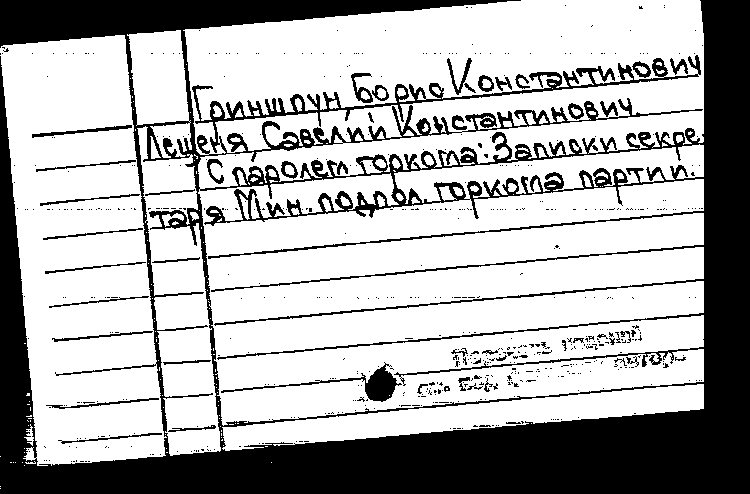 Гриншпун, Борис Константинович
Лещеня, Савелий Константинович.
С паролем горкома: Записки секре-
таря Мин. подпол. горкома партии.